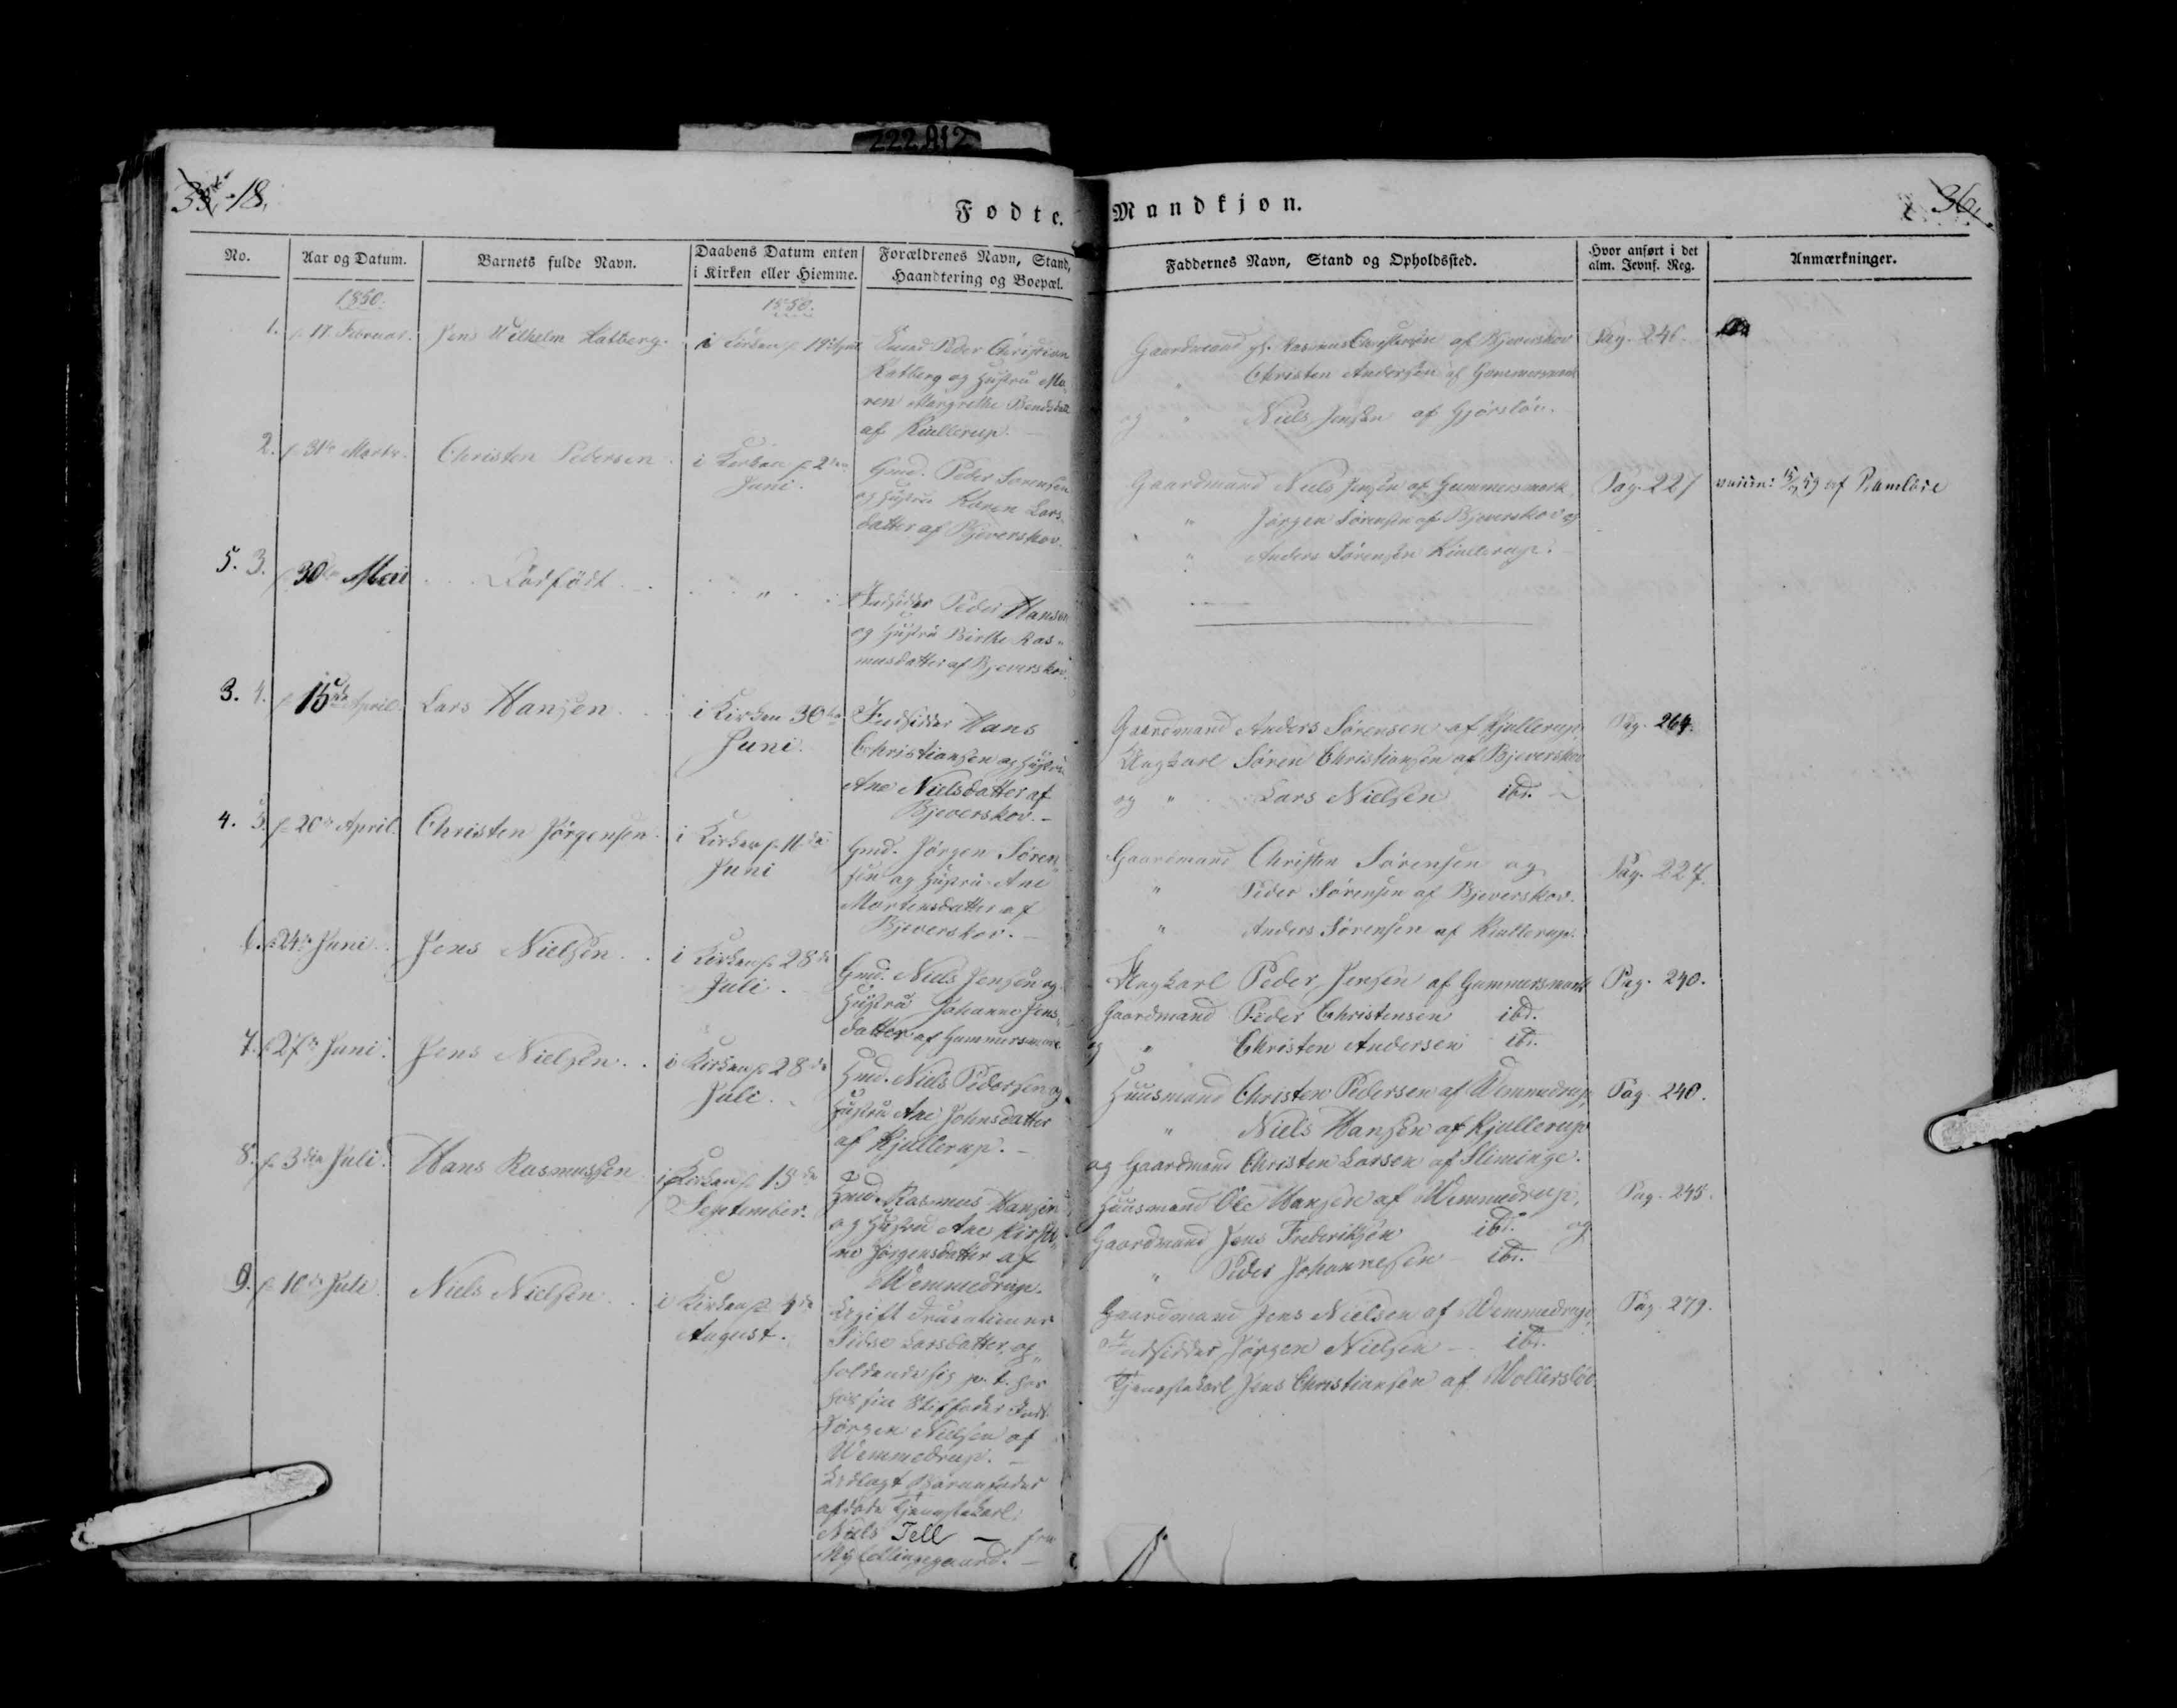 222 A12
18.
36.
Fødte. Mandkjøn.
No.
Aar og Datum.
Barnets fulde Navn.
Daabens Datum enten
i Kirken eller Hiemme.
Forældrenes Navn, Stand,
Haandtering og Boepæl.
Faddernes Navn, Stand og Opholdssted.
Hvor anført i det
alm. Jevnf. Reg.
Anmærkninger.
1850.
1850.
1.
17 Februar.
Jens Wilhelm
Peder Christian
og Hustru Ma-
ren Margrethe
af Kiullerup.
Gaardmand Rasmus Christensen af Bjeverskov
" Christen Andersen af Gummersmark
og " Niels Jensen af Gjørsløv.
Pag. 246.
2.
31te Marts.
Christen Pedersen.
i Kirken
Juni.
Gmd. Peder Sørensen
og Hustru Karen Lars-
datter af Bjeverskov.
Gaardmand Niels Jensen af Gummersmark,
" Jørgen Sørensen af Bjeverskov og
" Anders Sørensen Kiullerup.
Pag. 227
5. 3.
30te Mai
Dødfødt
"
Indsidder Peder Hansen
og Hustru Birthe Ras-
musdatter af Bjeverskov.
3. 4.
15de April.
Lars Hansen
i Kirken 30te
Juni.
Indsidder Hans
Christiansen og Hustru
Ane Nielsdatter af
Bjeverskov.
Gaardmand Anders Sørensen af Kjullerup,
Ungkarl Søren Christiansen af Bjeverskov
og " Lars Nielsen ibd.
Pag. 264.
4. 5.
20de April.
Christen Jørgensen
i Kirken 11de
Juni
Gmd. Jørgen Søren-
sen og Hustru Ane
Mortensdatter af
Bjeverskov.
Gaardmand Christen Sørensen og
" Peder Sørensen af Bjeverskov.
" Anders Sørensen af Kiullerup.
Pag. 227.
6.
24de Juni.
Jens Nielsen
i Kirken 28de
Juli.
Gmd. Niels Jensen og
Hustru Johanne Jens-
datter af Gummersmark
Ungkarl Peder Jensen af Gummersmark
Gaardmand Peder Christensen ibd.
og " Christen Andersen ibd.
Pag. 240.
7.
27de Juni.
Jens Nielsen
i Kirken 28de
Juli.
Hmd. Niels Pedersen og
Hustru Ane Johnsdatter
af Kjullerup.
Huusmand Christen Pedersen af Wemmedrup,
" Niels Hansen af Kjullerup
og Gaardmand Christen Larsen af Sliminge.
Pag. 240.
8.
3die Juli.
Hans Rasmussen
i Kirken 15de
September.
Hmd. Rasmus Hansen
og Hustru Ane Kirsti-
ne Jørgensdatter af
Wemmedrup.
Huusmand Ole Hansen af Wemmedrup,
Gaardmand Jens Frederiksen ibd. og
" Peder Johannesen ibd.
Pag. 245.
9.
10de Juli.
Niels Nielsen
i Kirken 4de
August.
Ugift Fruentimmer
Sidse Larsdatter, op-
holdende sig p. t. hos
sin Stiffader Inds.
Jørgen Nielsen af
Wemmedrup.
Udlagt Barnefader
afdøde Tjenestekarl:
Niels Tell — fra
Gaardmand Jens Nielsen af Wemmedrup,
Indsidder Jørgen Nielsen ibd.
Tjenestekarl Jens Christiansen af Wollersløv.
Pag. 279.